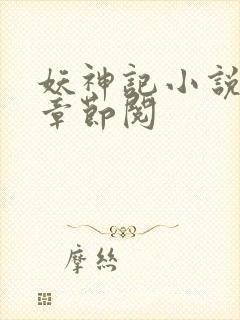 妖神記小説
章節閱
摩絲